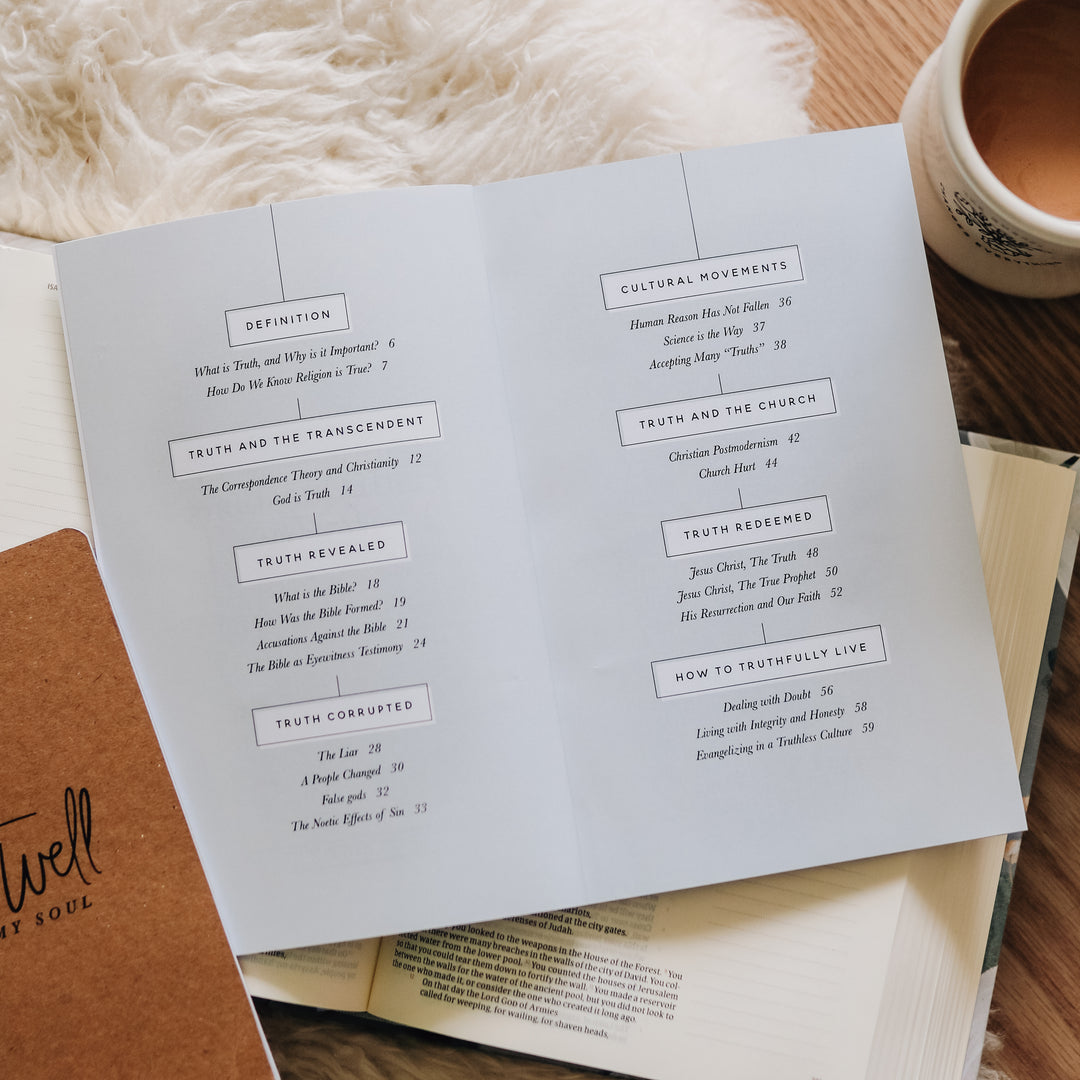 ISA
DEFINITION
What is Truth, and Why is it Important? 6
How Do We Know Religion is True? 7
TRUTH AND THE TRANSCENDENT
The Correspondence Theory and Christianity 12
God is Truth 14
TRUTH REVEALED
What is the Bible? 18
How Was the Bible Formed? 19
Accusations Against the Bible 21
The Bible as Eyewitness Testimony 24
TRUTH CORRUPTED
The Liar 28
A People Changed 30
False gods 32
The Noetic Effects of Sin 33
CULTURAL MOVEMENTS
Human Reason Has Not Fallen 36
Science is the Way 37
Accepting Many “Truths” 38
TRUTH AND THE CHURCH
Christian Postmodernism 42
Church Hurt 44
TRUTH REDEEMED
Jesus Christ, The Truth 48
Jesus Christ, The True Prophet 50
His Resurrection and Our Faith 52
HOW TO TRUTHFULLY LIVE
Dealing with Doubt 56
Living with Integrity and Honesty 58
Evangelizing in a Truthless Culture 59
well
MY SOUL
ariots,
tioned at the city gates.
efenses of Judah.
you looked to the weapons in the House of the Forest. You
there were many breaches in the walls of the city of David. You col-
lected water from the lower pool. You counted the houses of Jerusalem
so that you could tear them down to fortify the wall. You made a reservoir
between the walls for the water of the ancient pool, but you did not look to
the one who made it, or consider the one who created it long ago.
On that day the Lord GOD of Armies
called for weeping, for wailing, for shaven heads,